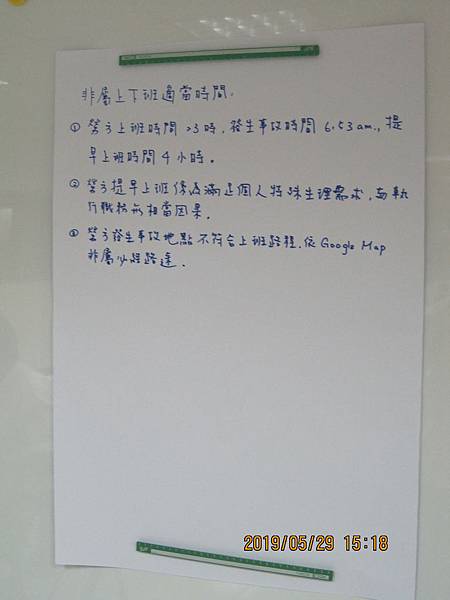 非屬上下班適當時間.
① 勞方上班時間 23時, 發生事故時間 6.53 am., 提
早上班時間 4 小時。
② 勞方提早上班係為滿足個人特殊生理需求, 與執
行職務無相當因果.
③ 勞方發生事故地點不符合上班路程, 依 Google Map
非屬必經路途.
2019/05/29 15:18